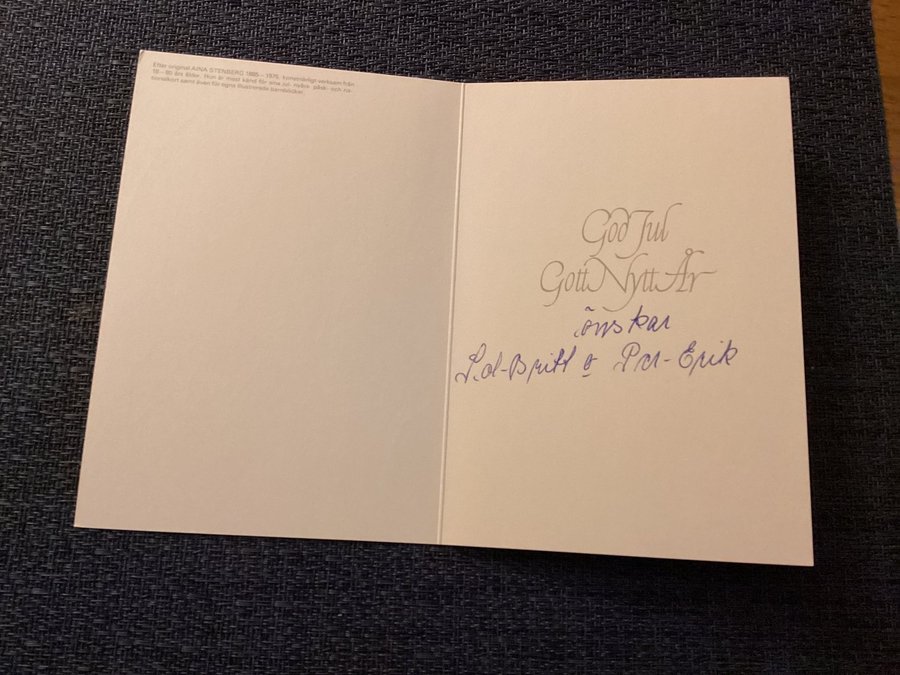 Efter original AINA STENBERG 1885–1975, konstnärligt verksam från
10–80 års ålder. Hon är mest känd för sina jul- nyårs- påsk- och na-
tionalkort samt även för egna illustrerade barnböcker.
God Jul
Gott Nytt År
önskar
-Britt o Per-Erik